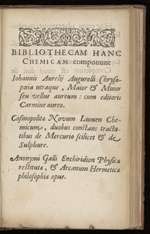 BIBLIOTHECAM HANC
CHEMICAM componunt
Iohannis Aurelij Augurelli Chryso-
pœia utraque, Maior & Minor
seu vellus aureum: cum æditione
Carmine aureo.
Cosmopolitæ Novum Lumen Che-
micum, duobus constans tracta-
tibus de Mercurio scilicet & de
Sulphure.
Anonymi Galli Enchiridion Physicæ
restitutæ, & Arcanum Hermeticæ
philosophiæ opus.